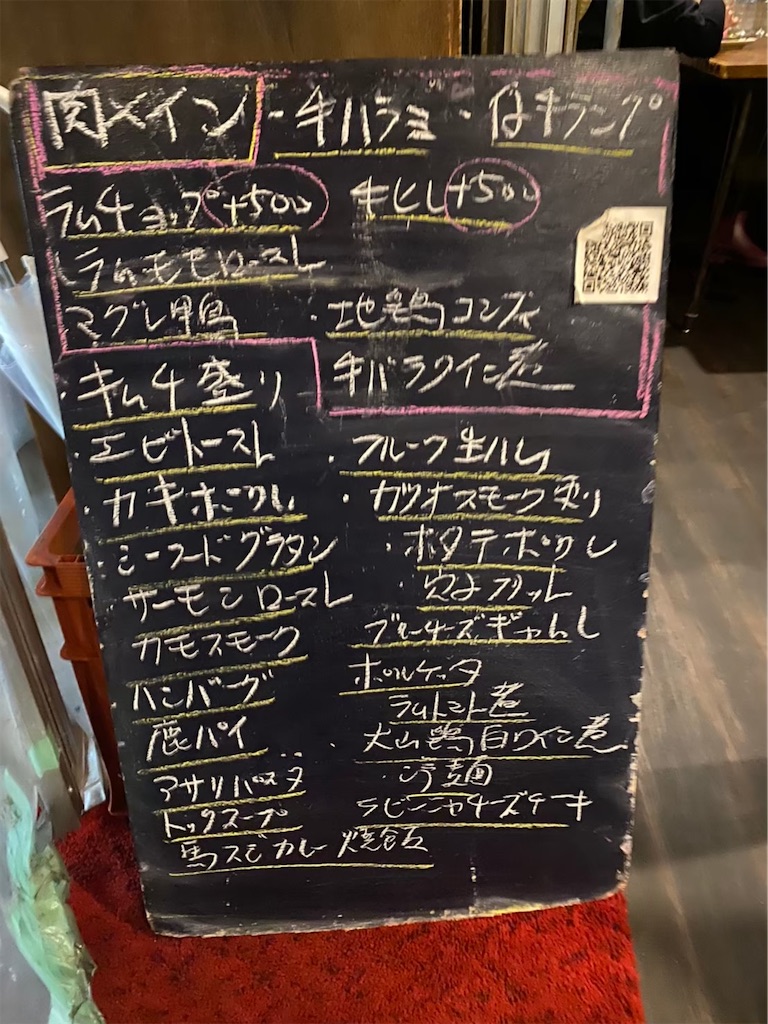 肉メイン ・牛ハラミ ・仔牛ランプ
ラムチョップ+500 牛ヒレ+500
ラムモモロースト
マグレ鴨 ・地鶏コンフィ
牛バラワイン煮
・キムチ盛り
・エビトースト ・フルーツ生ハム
・カキポワレ ・カツオスモーク炙り
・シーフードグラタン ・ホタテポワレ
サーモンロースト 穴子フリット
カモスモーク ブルーチーズギャムレ
ハンバーグ ポルケッタ
ラムトマト煮
鹿パイ ・大山鶏白ワイン煮
アサリパスタ ・冷麺
トックスープ ラビーニャチーズケーキ
馬スジカレー 焼飯